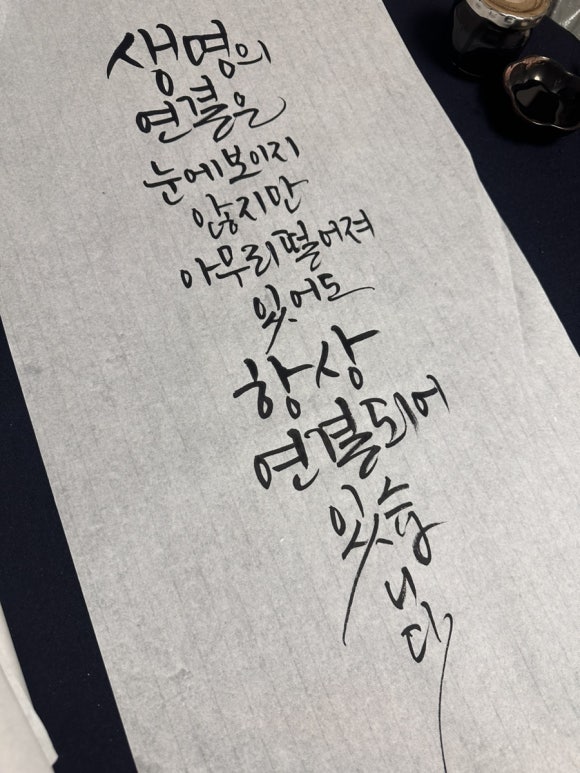 생명의
연결은
눈에보이지
않지만
아무리떨어져
있어도
항상
연결되어
있습
니
다